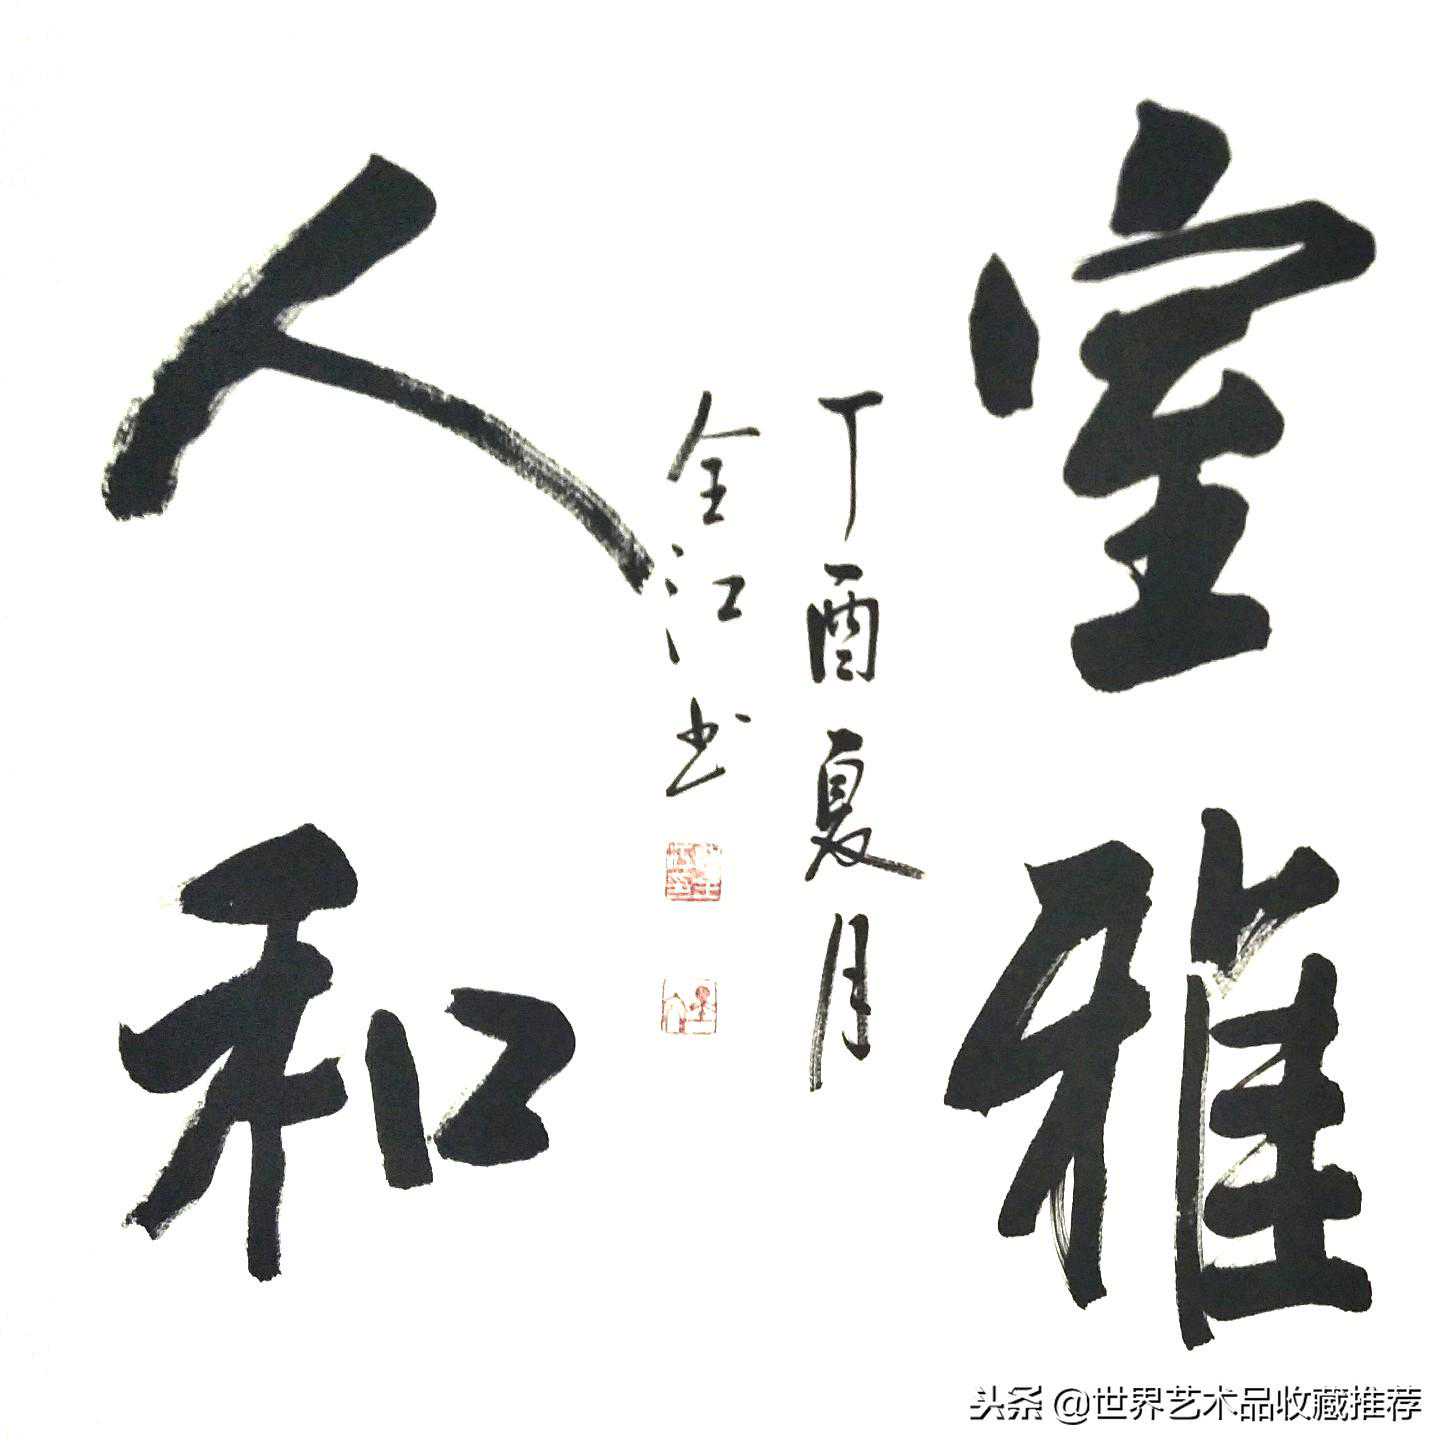 室雅
人和
丁酉夏月
全江书
头条 @世界艺术品收藏推荐